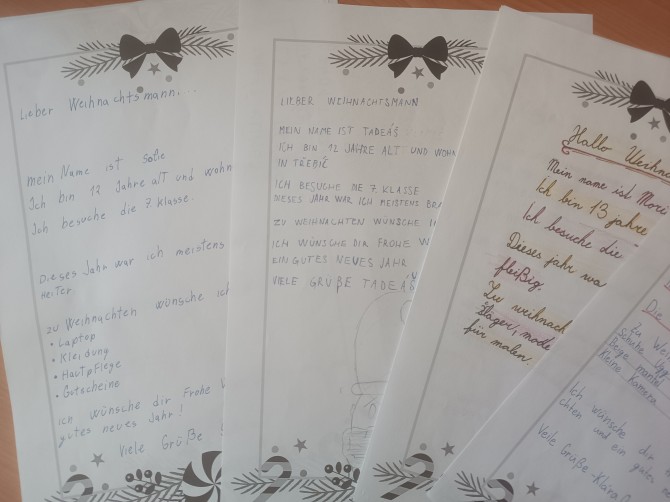 Lieber Weihnachtsmann,...
mein Name ist Soße
Ich bin 12 Jahre alT und wohn
Ich besuche die 7. klasse.
Dieses Jahr war ich meistens
Heiter
zu Weihnachten wünsche ich
• Laptop
• Kleidung
• Hautpflege
• Gutscheine
ich wünsche dir Frohe
gutes neues Jahr!
Viele Grüße
LIEBER WEIHNACHTSMANN
MEIN NAME IST TADEÁŠ
ICH BIN 12 JAHRE ALT UND WOHN
IN TŘEBÍČ
ICH BESUCHE DIE 7. KLASSE
DIESES JAHR WAR ICH MEISTENS BRA
ZU WEIHNACHTEN WÜNSCHE
ICH WÜNSCHE DIR FROHE W
EIN GUTES NEUES JAHR
VIELE GRÜßE TADEÁŠ
Hallo Weihna
Mein name ist Mori
Ich bin 13 jahre
Ich besuche die
Dieses jahr wa
fleißig.
Zu weihnach
mode
für malen.
Die
Zu We
Schuhe
Beige mantel
Kleine Kamera
Ich wünsche dir
chten und ein gutes
Viele Grüße